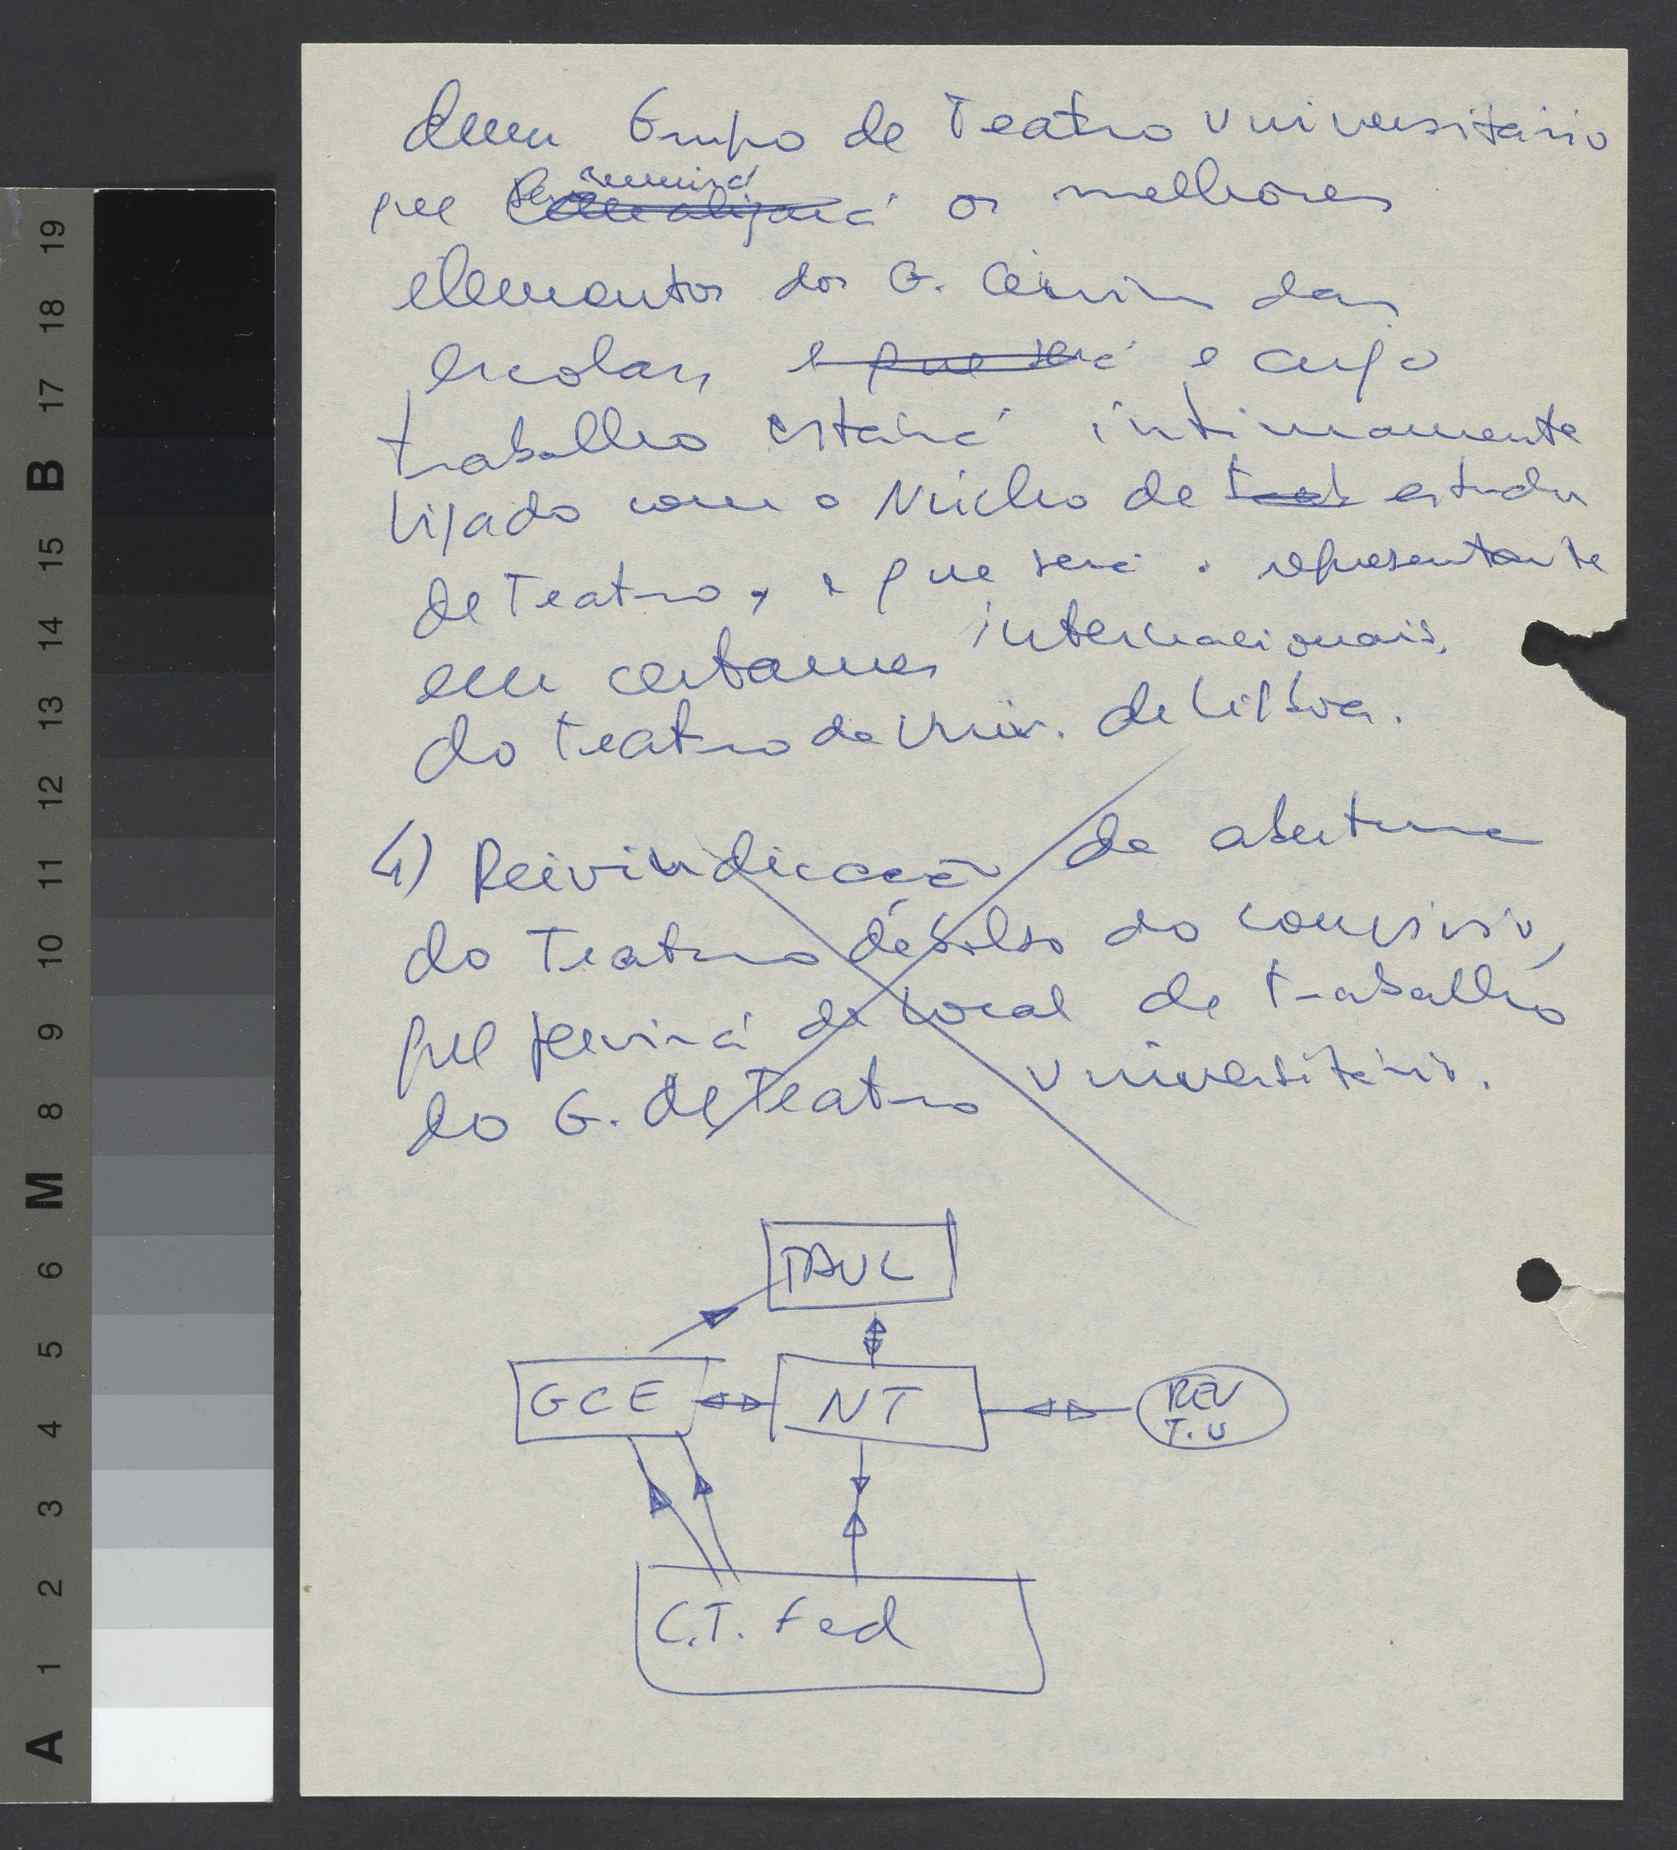 dum Grupo de Teatro Universitário
reunirá
que os melhores
elementos dos G. Cénicos das
escolas e que será e cujo
trabalho estará intimamente
ligado com o Núcleo de estudos
de Teatro, e que será o representante
em certames internacionais.
do teatro da Univ. de Lisboa.
4) Reivindicação da abertura
do Teatro de bolso do convívio,
que servirá de local de trabalho
do G. de Teatro Universitário.
TAUL
GCE NT REV
T.U
C.T. Fed
19
18
17
B
15
14
13
12
11
10
9
8
M
6
5
4
3
2
1
A